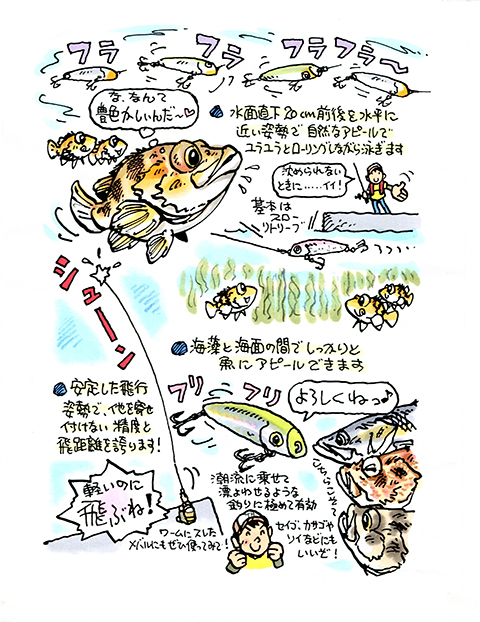 フラ フラ フラフラ～
な、なんて
艶かしいんだ～♡
水面直下20cm前後を水平に
近い姿勢で自然なアピールで
ユラユラとローリングしながら泳ぎます
沈められない
ときに……イイ!
基本は
スロー
リトリーブ
つつつ…
シューン
海藻と海面の間でしっかりと
魚にアピールできます
安定した飛行
姿勢で、他を寄せ
付けない精度と
飛距離を誇ります!
フリ フリ
よろしくねっ♪
こちらこそぉ～
軽いのに
飛ぶね!
潮流に乗せて
漂よわせるような
釣りに極めて有効
ワームにスレた
メバルにもぜひ使ってみて!
セイゴ、カサゴや
ソイなどにも
いいぞ!